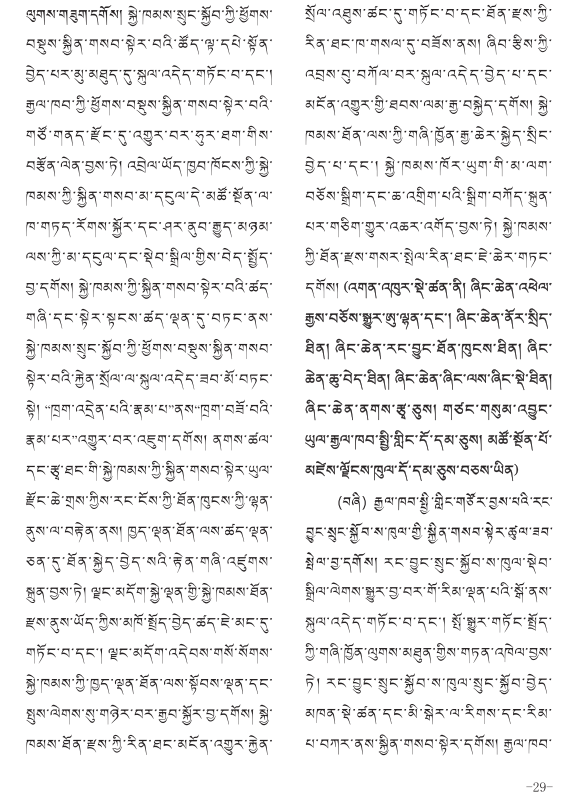 ལུགས་གཟུག་དགོས། སྐྱེ་ཁམས་སྲུང་སྐྱོབ་ཀྱི་ཕྱོགས་
བསྡུས་སྐྱིན་གསབ་སྟེར་བའི་ཚོད་ལྟ་དཔེ་སྟོན་
བྱེད་པར་མུ་མཐུད་དུ་སྐུལ་འདེད་གཏོང་བ་དང་།
རྒྱལ་ཁབ་ཀྱི་ཕྱོགས་བསྡུས་སྐྱིན་གསབ་སྟེར་བའི་
གཙོ་གནད་རྫོང་དུ་འགྱུར་བར་ཧུར་ཐག་གིས་
བརྩོན་ལེན་བྱས་ཏེ། འབྲེལ་ཡོད་ཁྱབ་ཁོངས་ཀྱི་སྐྱེ་
ཁམས་ཀྱི་སྐྱིན་གསབ་མ་དངུལ་དེ་མཚོ་སྔོན་ལ་
ཁ་གཏད་རོགས་སྐྱོར་དང་ཤར་ནུབ་རྒྱུད་མཉམ་
ལས་ཀྱི་མ་དངུལ་དང་སྡེབ་སྒྲིལ་གྱིས་བེད་སྤྱོད་
བྱ་དགོས། སྐྱེ་ཁམས་ཀྱི་སྐྱིན་གསབ་སྟེར་བའི་ཚད་
གཞི་དང་སྟེར་སྟངས་ཚད་ལྡན་དུ་བཏང་ནས་
སྐྱེ་ཁམས་སྲུང་སྐྱོབ་ཀྱི་ཕྱོགས་བསྡུས་སྐྱིན་གསབ་
སྟེར་བའི་རྐྱེན་སྲོལ་ལ་སྐུལ་འདེད་ཟབ་མོ་བཏང་
སྟེ། “ཁྲག་འདྲེན་པའི་རྣམ་པ”ནས“ཁྲག་བཟོ་བའི་
རྣམ་པར”འགྱུར་བར་འཇུག་དགོས། ནགས་ཚལ་
དང་རྩྭ་ཐང་གི་སྐྱེ་ཁམས་ཀྱི་སྐྱིན་གསབ་སྟེར་ཡུལ་
རྫོང་ཆེ་གྲས་ཀྱིས་རང་ངོས་ཀྱི་ཐོན་ཁུངས་ཀྱི་ལྡན་
ནུས་ལ་བརྟེན་ནས། ཁྱད་ལྡན་ཐོན་ལས་ཚད་ལྡན་
ཅན་དུ་ཐོན་སྐྱེད་བྱེད་སའི་རྟེན་གཞི་འཛུགས་
སྐྲུན་བྱས་ཏེ། ལྗང་མདོག་སྐྱེ་ལྡན་གྱི་སྐྱེ་ཁམས་ཐོན་
རྫས་ནུས་ཡོད་ཀྱིས་མཁོ་སྤྲོད་བྱེད་ཚད་ཇེ་མང་དུ་
གཏོང་བ་དང་། ལྗང་མདོག་འདེབས་གསོ་སོགས་
སྐྱེ་ཁམས་ཀྱི་ཁྱད་ལྡན་ཐོན་ལས་སྟོབས་ལྡན་དང་
སྤུས་ལེགས་སུ་གཉེར་བར་རྒྱབ་སྐྱོར་བྱ་དགོས། སྐྱེ་
ཁམས་ཐོན་རྫས་ཀྱི་རིན་ཐང་མངོན་འགྱུར་རྐྱེན་
སྲོལ་འཐུས་ཚང་དུ་གཏོང་བ་དང་ཐོན་རྫས་ཀྱི་
རིན་ཐང་ཁ་གསལ་དུ་བཟོས་ནས། ཞིབ་རྩིས་ཀྱི་
འབྲས་བུ་བཀོལ་བར་སྐུལ་འདེད་བྱེད་པ་དང་
མངོན་འགྱུར་གྱི་ཐབས་ལམ་རྒྱ་བསྐྱེད་དགོས། སྐྱེ་
ཁམས་ཐོན་ལས་ཀྱི་གཞི་ཁྱོན་རྒྱ་ཆེར་སྐྱེད་སྲིང་
བྱེད་པ་དང་། སྐྱེ་ཁམས་ཁོར་ཡུག་གི་མ་ལག་
བཅོས་སྒྲིག་དང་ཆ་འགྲིག་པའི་སྒྲིག་བཀོད་སྐྲུན་
པར་གཅིག་གྱུར་འཆར་འགོད་བྱས་ཏེ། སྐྱེ་ཁམས་
ཀྱི་ཐོན་རྫས་གསར་སྤེལ་རིན་ཐང་ཇེ་ཆེར་གཏང་
དགོས། (འགན་འཁུར་སྡེ་ཚན་ནི། ཞིང་ཆེན་འཕེལ་
རྒྱས་བཅོས་སྒྱུར་ཨུ་ལྷན་དང་། ཞིང་ཆེན་ནོར་སྲིད་
ཐིན། ཞིང་ཆེན་རང་བྱུང་ཐོན་ཁུངས་ཐིན། ཞིང་
ཆེན་ཆུ་བེད་ཐིན། ཞིང་ཆེན་ཞིང་ལས་ཞིང་སྡེ་ཐིན།
ཞིང་ཆེན་ནགས་རྩྭ་ཅུས། གཙང་གསུམ་འབྱུང་
ཡུལ་རྒྱལ་ཁབ་སྤྱི་གླིང་དོ་དམ་ཅུས། མཚོ་སྔོན་པོ་
མཛེས་ལྗོངས་ཁུལ་དོ་དམ་ཅུས་བཅས་ཡིན)
(བཞི) རྒྱལ་ཁབ་སྤྱི་གླིང་གཙོར་བྱས་པའི་རང་
བྱུང་སྲུང་སྐྱོབ་ས་ཁུལ་གྱི་སྐྱིན་གསབ་སྟེར་ཚུལ་ཟབ་
སྤེལ་བྱ་དགོས། རང་བྱུང་སྲུང་སྐྱོབ་ས་ཁུལ་སྡེབ་
སྒྲིལ་ལེགས་སྒྱུར་བྱ་བར་གོ་རིམ་ལྡན་པའི་སྒོ་ནས་
སྐུལ་འདེད་གཏོང་བ་དང་། སྤོ་སྒྱུར་གཏོང་སྤྲོད་
ཀྱི་གཞི་ཁྱོན་ལུགས་མཐུན་གྱིས་གཏན་འཁེལ་བྱས་
ཏེ། རང་བྱུང་སྲུང་སྐྱོབ་ས་ཁུལ་སྲུང་སྐྱོབ་བྱེད་
མཁན་སྡེ་ཚན་དང་མི་སྒེར་ལ་རིགས་དང་རིམ་
པ་བཀར་ནས་སྐྱིན་གསབ་སྟེར་དགོས། རྒྱལ་ཁབ་
-29-